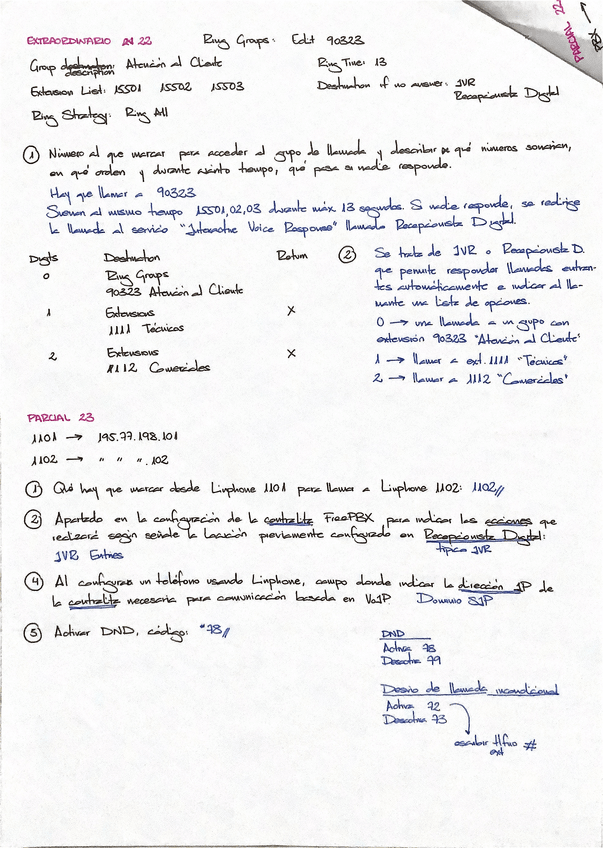 PARCIAL 22
PBX
EXTRAORDINARIO EN 22 Ring Groups: Edit 90323
Group destination: Atención al Cliente Ring Time: 13
description
Extension List: 15501 15502 15503 Destination if no answer: IVR
Recepcionista Digital
Ring Strategy: Ring All
① Número al que marcar para acceder al grupo de llamada y describir de qué números sonarían,
en qué orden y durante cuánto tiempo, qué pasa si nadie responde.
Hay que llamar a 90323
Suenan al mismo tiempo 15501,02,03 durante máx 13 segundos. Si nadie responde, se redirige
la llamada al servicio "Interactive Voice Response" llamado Recepcionista Digital.
Digits Destination Return
0 Ring Groups
90323 Atención al Cliente
1 Extensions X
1111 Técnicos
2 Extensions X
1112 Comerciales
② Se trata de IVR o Recepcionista D.
que permite responder llamadas entran-
tes automáticamente e indicar al lla-
mante una lista de opciones.
0 → una llamada a un grupo con
extensión 90323 "Atención al Cliente"
1 → llamar a ext. 1111 "Técnicos"
2 → llamar a 1112 "Comerciales"
PARCIAL 23
1101 → 195.77.198.101
1102 → " " " .102
① Qué hay que marcar desde Linphone 1101 para llamar a Linphone 1102: 1102//
② Apartado en la configuración de la centralita FreePBX para indicar las acciones que
realizará según señale la locución previamente configurado en Recepcionista Digital:
típica IVR
IVR Entries
④ Al configurar un teléfono usando Linphone, campo donde indicar la dirección IP de
la centralita necesaria para comunicación basada en VoIP. Dominio SIP
⑤ Activar DND, código: *78//
DND
Activa 78
Desactiva 79
Desvío de llamada incondicional
Activa 72
Desactiva 73
escribir tlfno #
ext